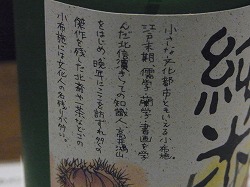 純
小さな文化都市ともいえる小布施。
江戸末期、儒学・蘭学・書画を学
んだ北信濃きっての知識人、高井鴻山
をはじめ、晩年にここを訪ずれ数々の
傑作を残した北斎や一茶などの
小布施には文化人の名残りが